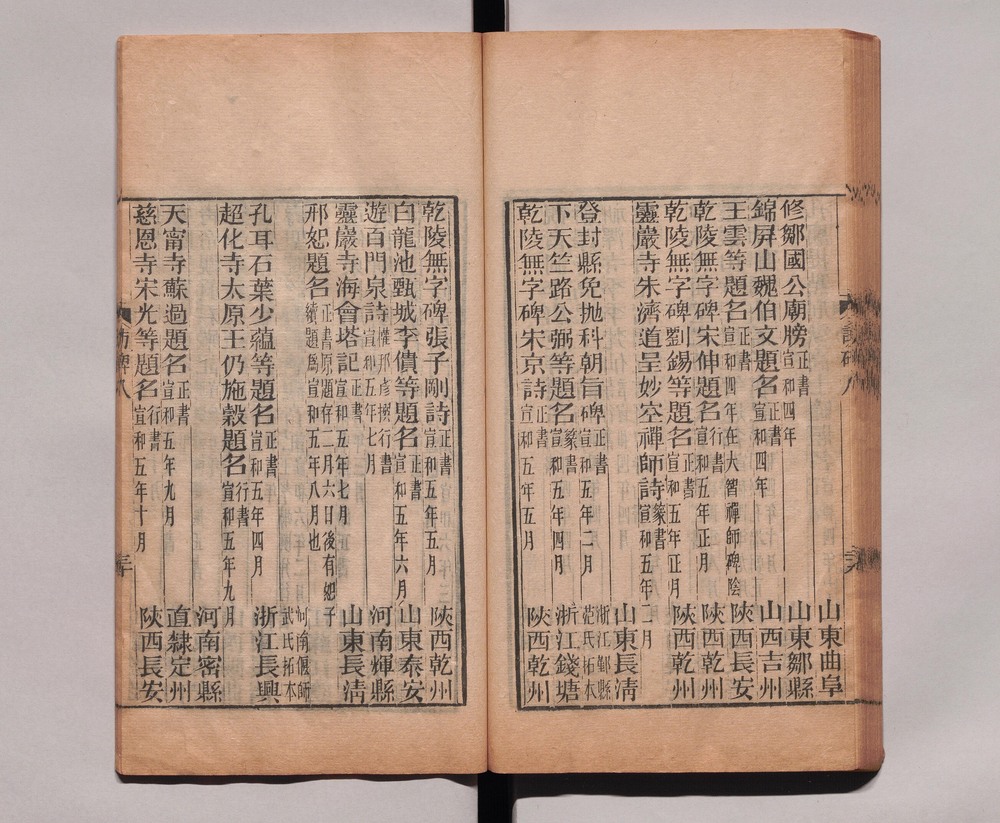 山東曲阜
修鄒國公廟牓正書宣和四年 山東鄒縣
錦屏山魏伯文題名正書宣和四年 山西吉州
王雲等題名正書宣和四年在大智禪師碑陰 陝西長安
乾陵無字碑宋伸題名行書宣和五年正月 陝西乾州
乾陵無字碑劉錫等題名正書宣和五年正月 陝西乾州
靈巖寺朱濟道呈妙空禪師詩篆書宣和五年二月 山東長淸
登封縣免抛科朝旨碑正書宣和五年二月 浙江鄞縣范氏拓本
下天竺路公弼等題名篆書宣和五年四月 浙江錢塘
乾陵無字碑朱京詩正書宣和五年五月 陝西乾州
乾陵無字碑張子剛詩正書宣和五年五月 陝西乾州
白龍池甄城李僨等題名正書宣和五年六月 山東泰安
遊百門泉詩邦彥撰行書宣和五年七月 河南輝縣
靈巖寺海會塔記正書宣和五年七月 山東長淸
邢恕題名正書原題存二月六日後有恕子續題爲宣和五年八月也 河南偃師武氏拓本
孔耳石葉少蘊等題名正書宣和五年四月 浙江長興
超化寺太原王仍施榖題名行書宣和五年九月 河南密縣
天甯寺蘇過題名正書宣和五年九月 直隸定州
慈恩寺宋光等題名行書宣和五年十月 陝西長安
訪碑八